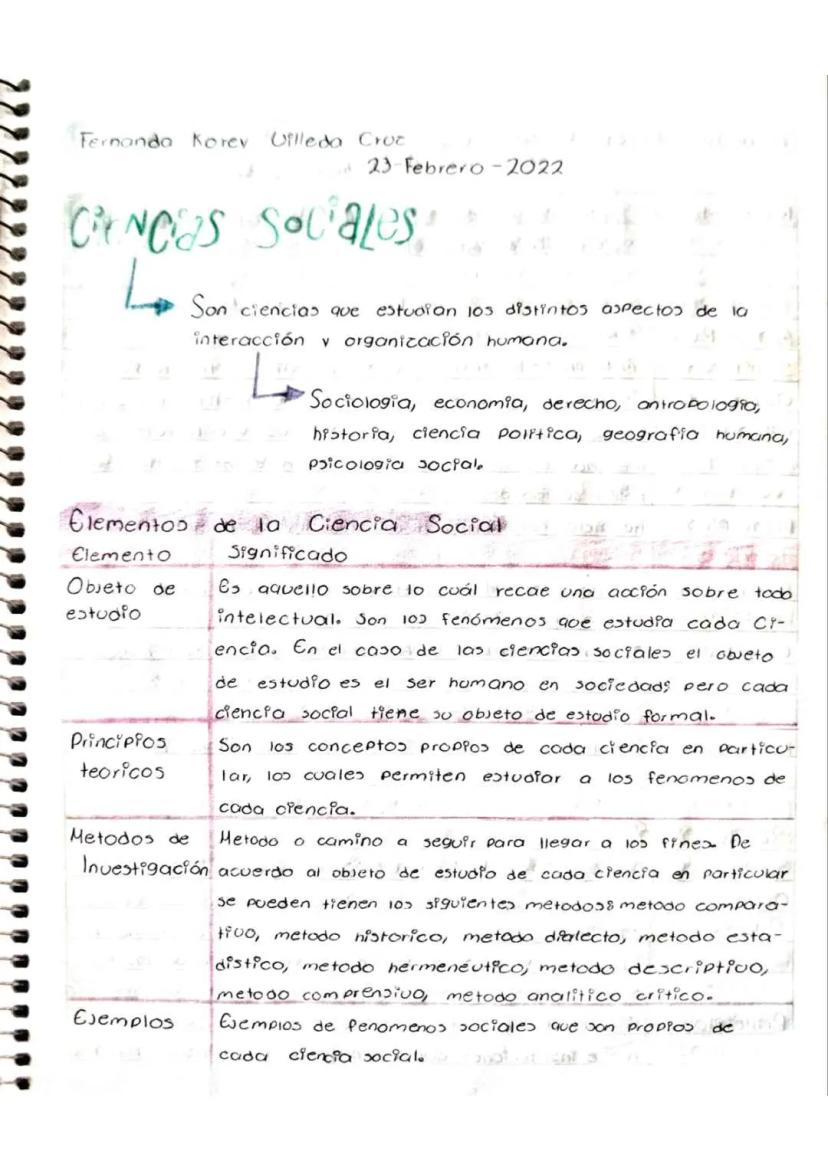 Fernanda Korey Villeda Cruz
23-Febrero-2022
Ciencias Sociales
Son ciencias que estudian los distintos aspectos de la
interacción y organización humana.
Sociología, economía, derecho, antropología,
historia, ciencia política, geografía humana,
psicología social.
Elementos de la Ciencia Social
Elemento Significado
Objeto de Es aquello sobre lo cuál recae una acción sobre todo
estudio intelectual. Son los fenómenos que estudia cada Ci-
encia. En el caso de las ciencias sociales el objeto
de estudio es el ser humano en sociedad; pero cada
ciencia social tiene su objeto de estudio formal.
Principios Son los conceptos propios de cada ciencia en particu-
teoricos lar, los cuales permiten estudiar a los fenomenos de
cada ciencia.
Metodos de Metodo o camino a seguir para llegar a los fines. De
Investigación acuerdo al objeto de estudio de cada ciencia en particular
se pueden tienen los siguientes metodos: metodo compara-
tivo, metodo historico, metodo dialecto, metodo esta-
dístico, metodo hermenéutico, metodo descriptivo,
metodo comprensivo, metodo analítico crítico.
Ejemplos Ejemplos de fenomenos sociales que son propios de
cada ciencia social.